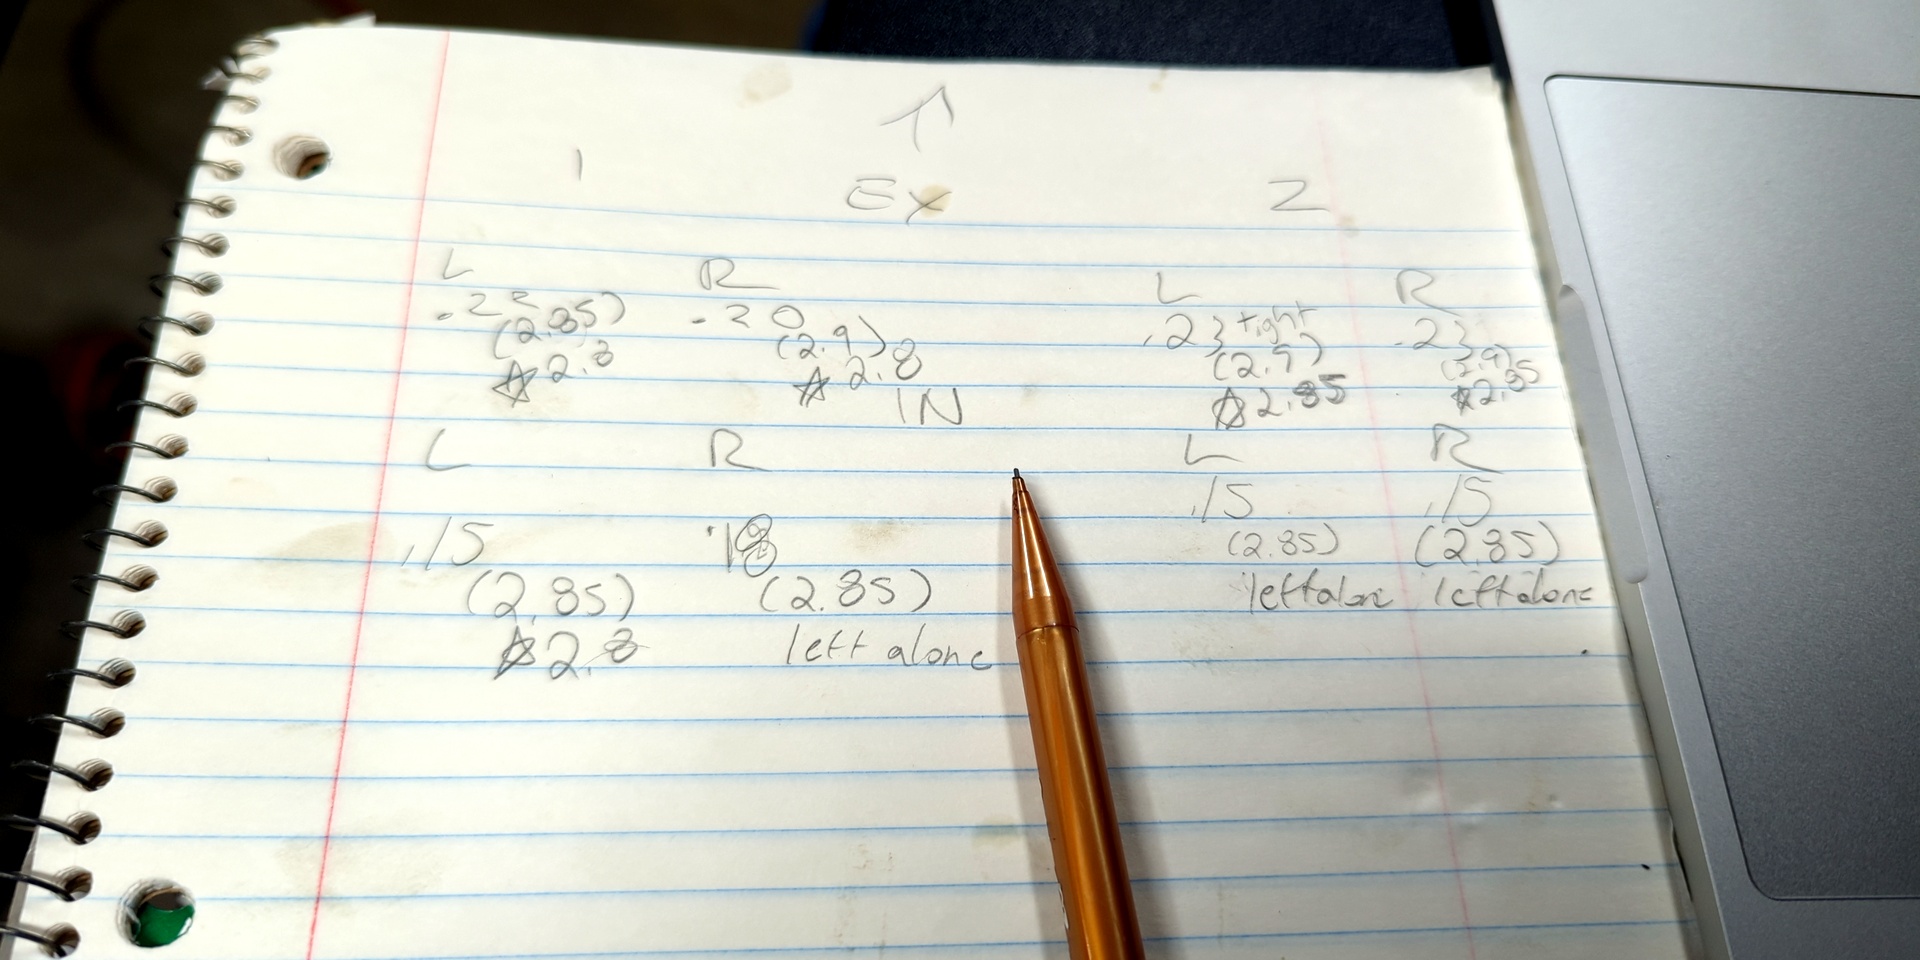 1 EX 2
L R L R
.22 .20 .23 tight .23
(2.85) (2.9) (2.9) (2.9)
☆2.8 ☆2.8 ☆2.85 ☆2.85
IN
L R L R
.15 .18 .15 .15
(2.85) (2.85) (2.85) (2.85)
☆2.8 left alone left alone left alone